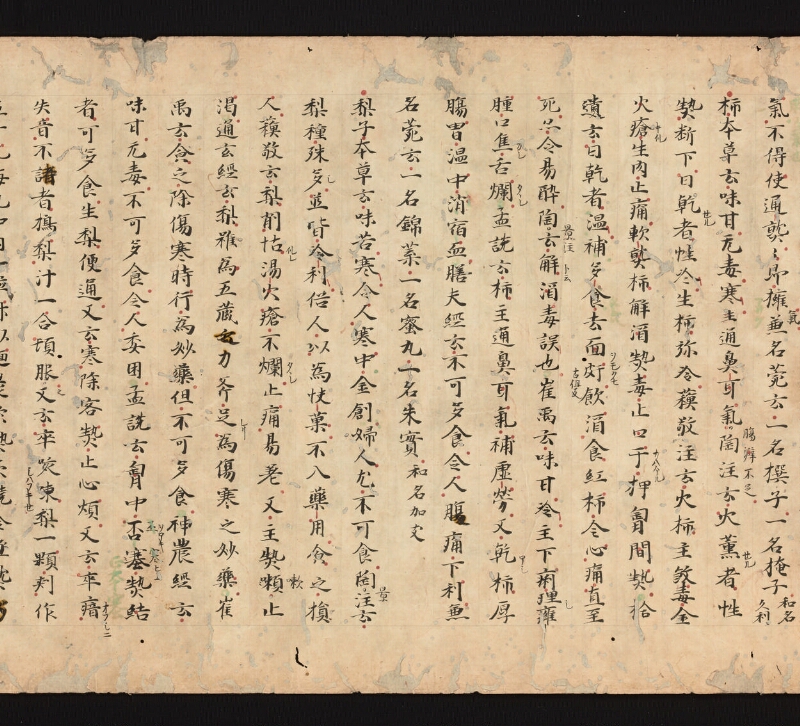 氣不得使通䶎々即擁兼名菀云一名撰子一名掩子和名久利
柿本草云味甘无毒寒主通鼻耳氣陶注云火薫者性
熱斷下日乾者性冷生柿弥冷蘓敬注云火柿主煞毒金
火瘡生肉止痛軟䶎柿解酒熱毒止口干押胷間熱拾
遺云日乾者温補多食去面皯飲酒食紅柿令心痛直至
死忽令易酔陶云解酒毒誤也崔禹云味甘冷主下痢理癰
腫口焦舌爛孟詵云柿主通鼻耳氣補虚勞又乾柿厚
腸胃温中消宿血膳夫經云不可多食令人腹痛下利兼
名菀云一名錦葉一名蜜丸一名朱實和名加支
梨子本草云味苦寒令人寒中金創婦人尤不可食陶注云
梨種殊多並皆冷利俗人以為快菓不入藥用食之損
人蘓敬云梨削怗湯火瘡不爛止痛易老又主熱嗽止
渴通玄經云梨雖為五蔵刀斧足為傷寒之妙藥崔
禹云食之除傷寒時行為妙藥但不可多食神農經云
味甘无毒不可多食令人委困孟詵云胷中否塞熱結
者可多食生梨便通又云寒除客熱止心煩又云卒瘖
失音不語者搗梨汁一合頓服之又云卒咳凍梨一顆刾作